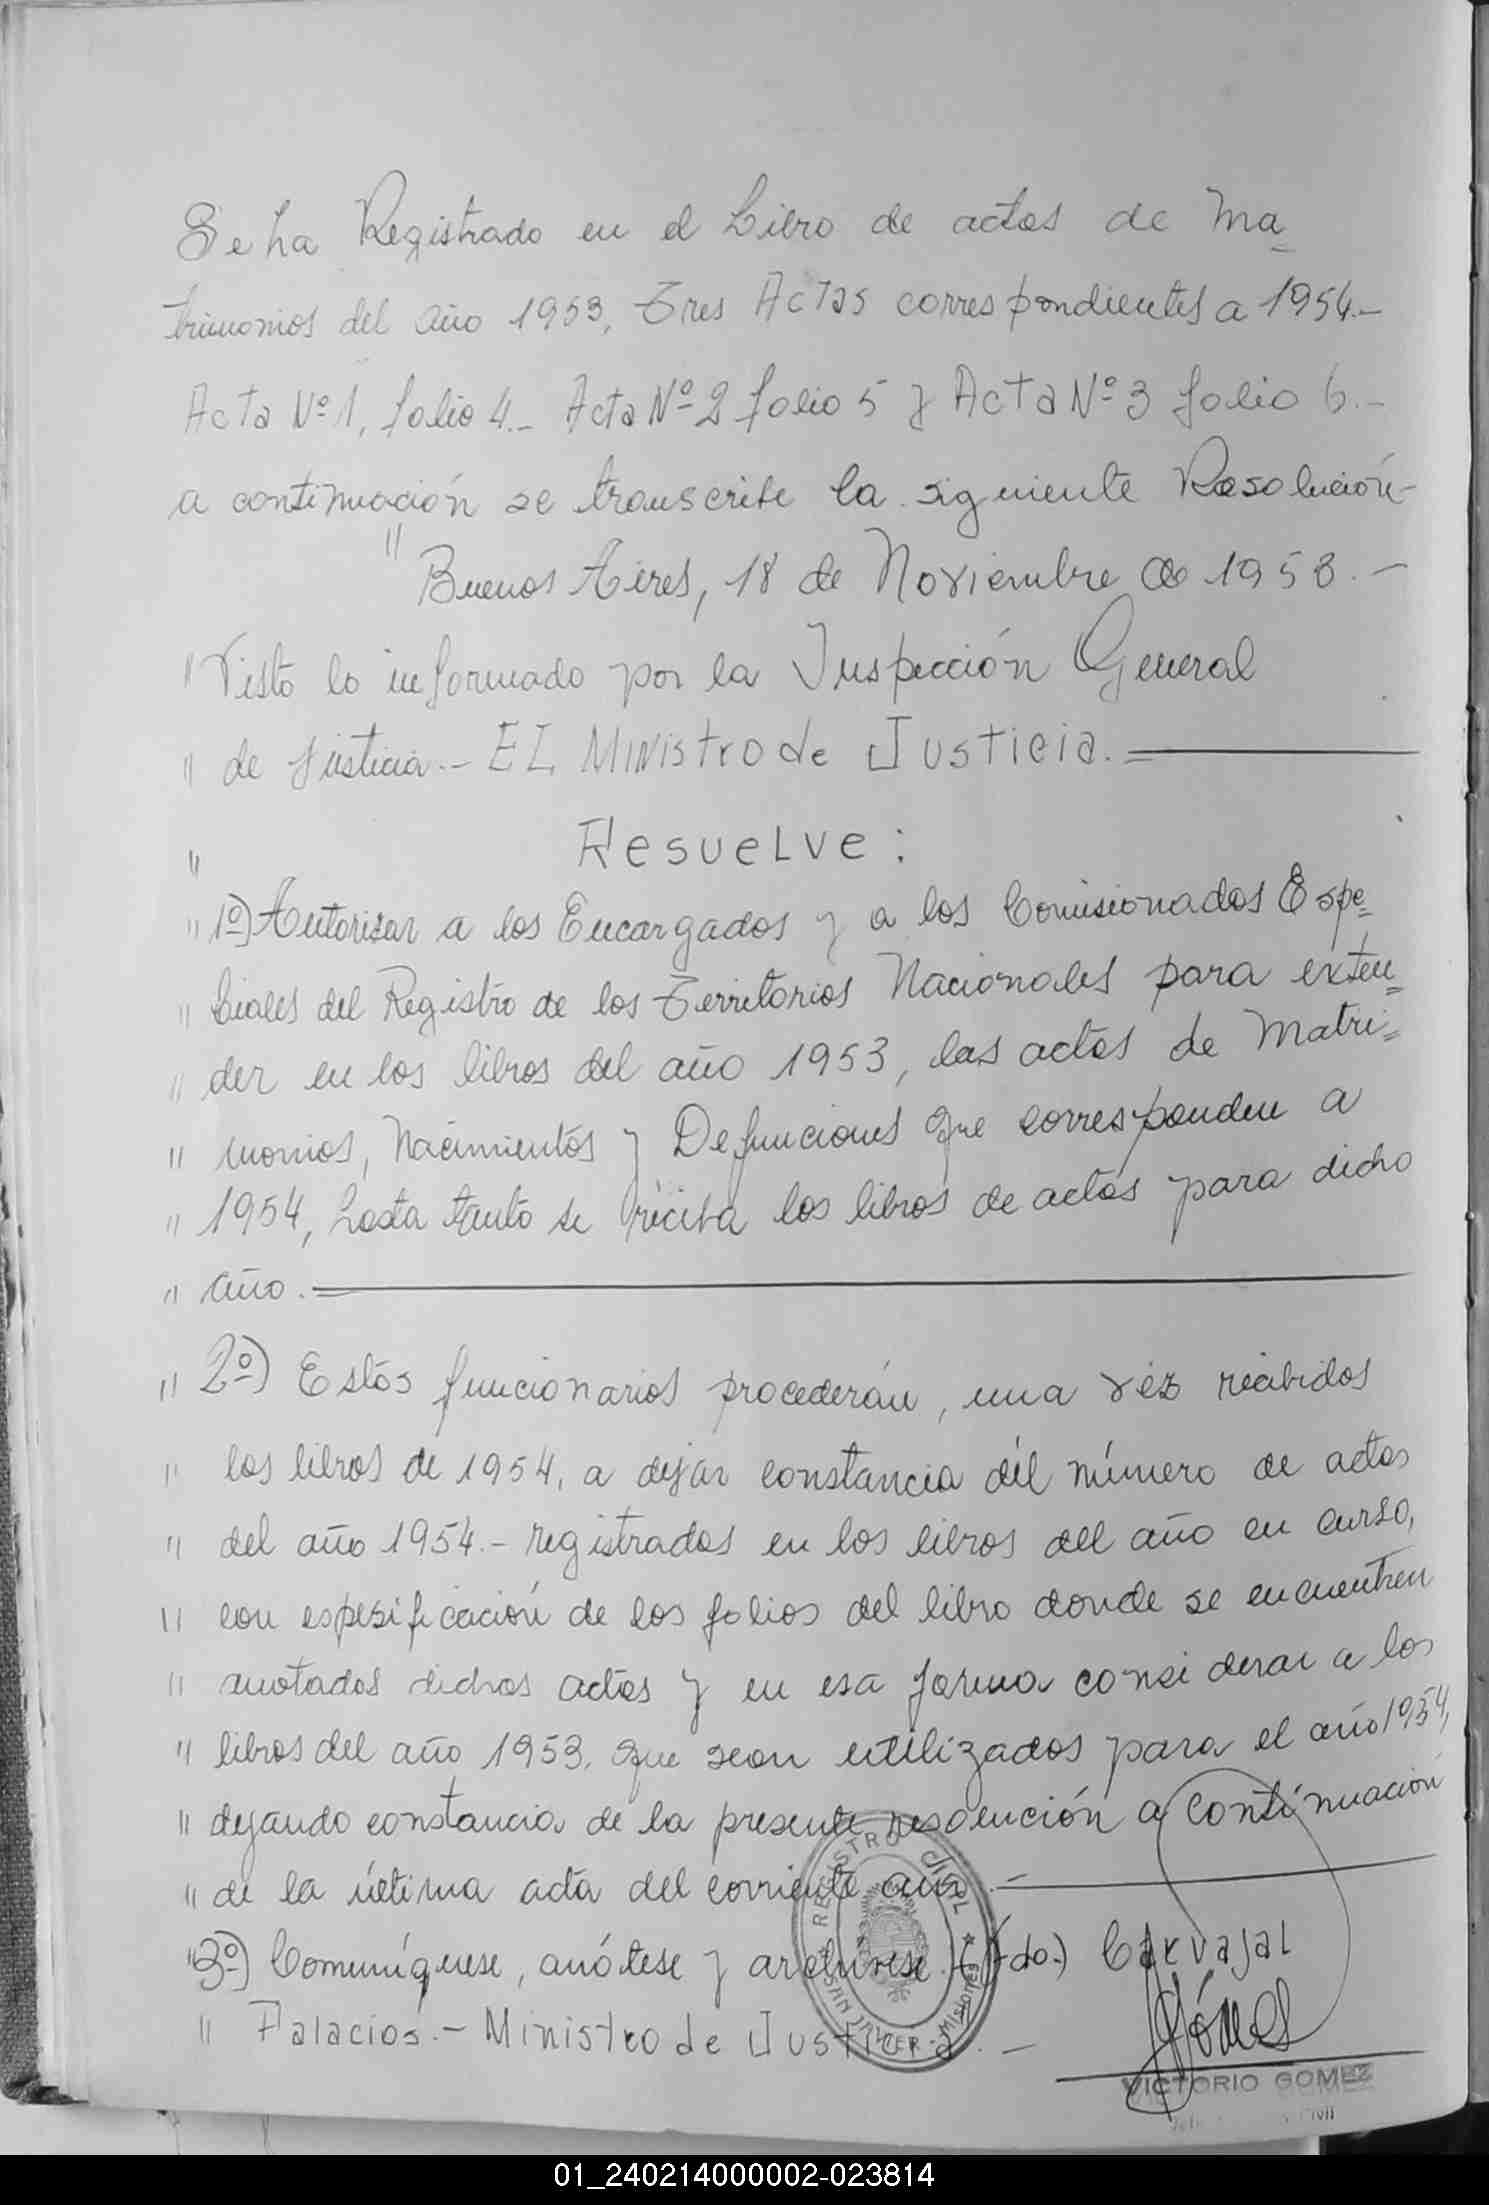 Se ha Registrado en el Libro de actas de Ma-
trimonios del año 1953, Tres Actas correspondientes a 1954.-
Acta Nº 1, folio 4.- Acta Nº 2 folio 5 y Acta Nº 3 folio 6.-
a continuación se transcribe la siguiente Resolución-
" Buenos Aires, 18 de Noviembre de 1953.-
" Visto lo informado por la Inspección General
" de Justicia.- EL Ministro de Justicia.=
" Resuelve:
" 1º) Autorizar a los Encargados y a los Comisionados Espe=
" ciales del Registro de los Territorios Nacionales para exten=
" der en los libros del año 1953, las actas de Matri=
" monios, Nacimientos y Defunciones que corresponden a
" 1954, hasta tanto se reciba los libros de actas para dicho
" año.=
" 2º) Estos funcionarios procederán, una vez recibidos
" los libros de 1954, a dejar constancia dél número de actas
" del año 1954.- registradas en los libros del año en curso,
" con espesificación de los folios del libro donde se encuentren
" anotadas dichas actas y en esa forma considerar a los
" libros del año 1953. que sean utilizados para el año 1954,
" dejando constancia de la presente resolución a continuación
" de la última acta del corriente año.-
" 3º) Comuníquese, anótese y archívese.- (Fdo.) Carvajal
" Palacios.- Ministro de Justicia.-
REGISTRO CIVIL
SAN JAVIER - Misiones
Gómez
VICTORIO GOMEZ
01_240214000002-023814